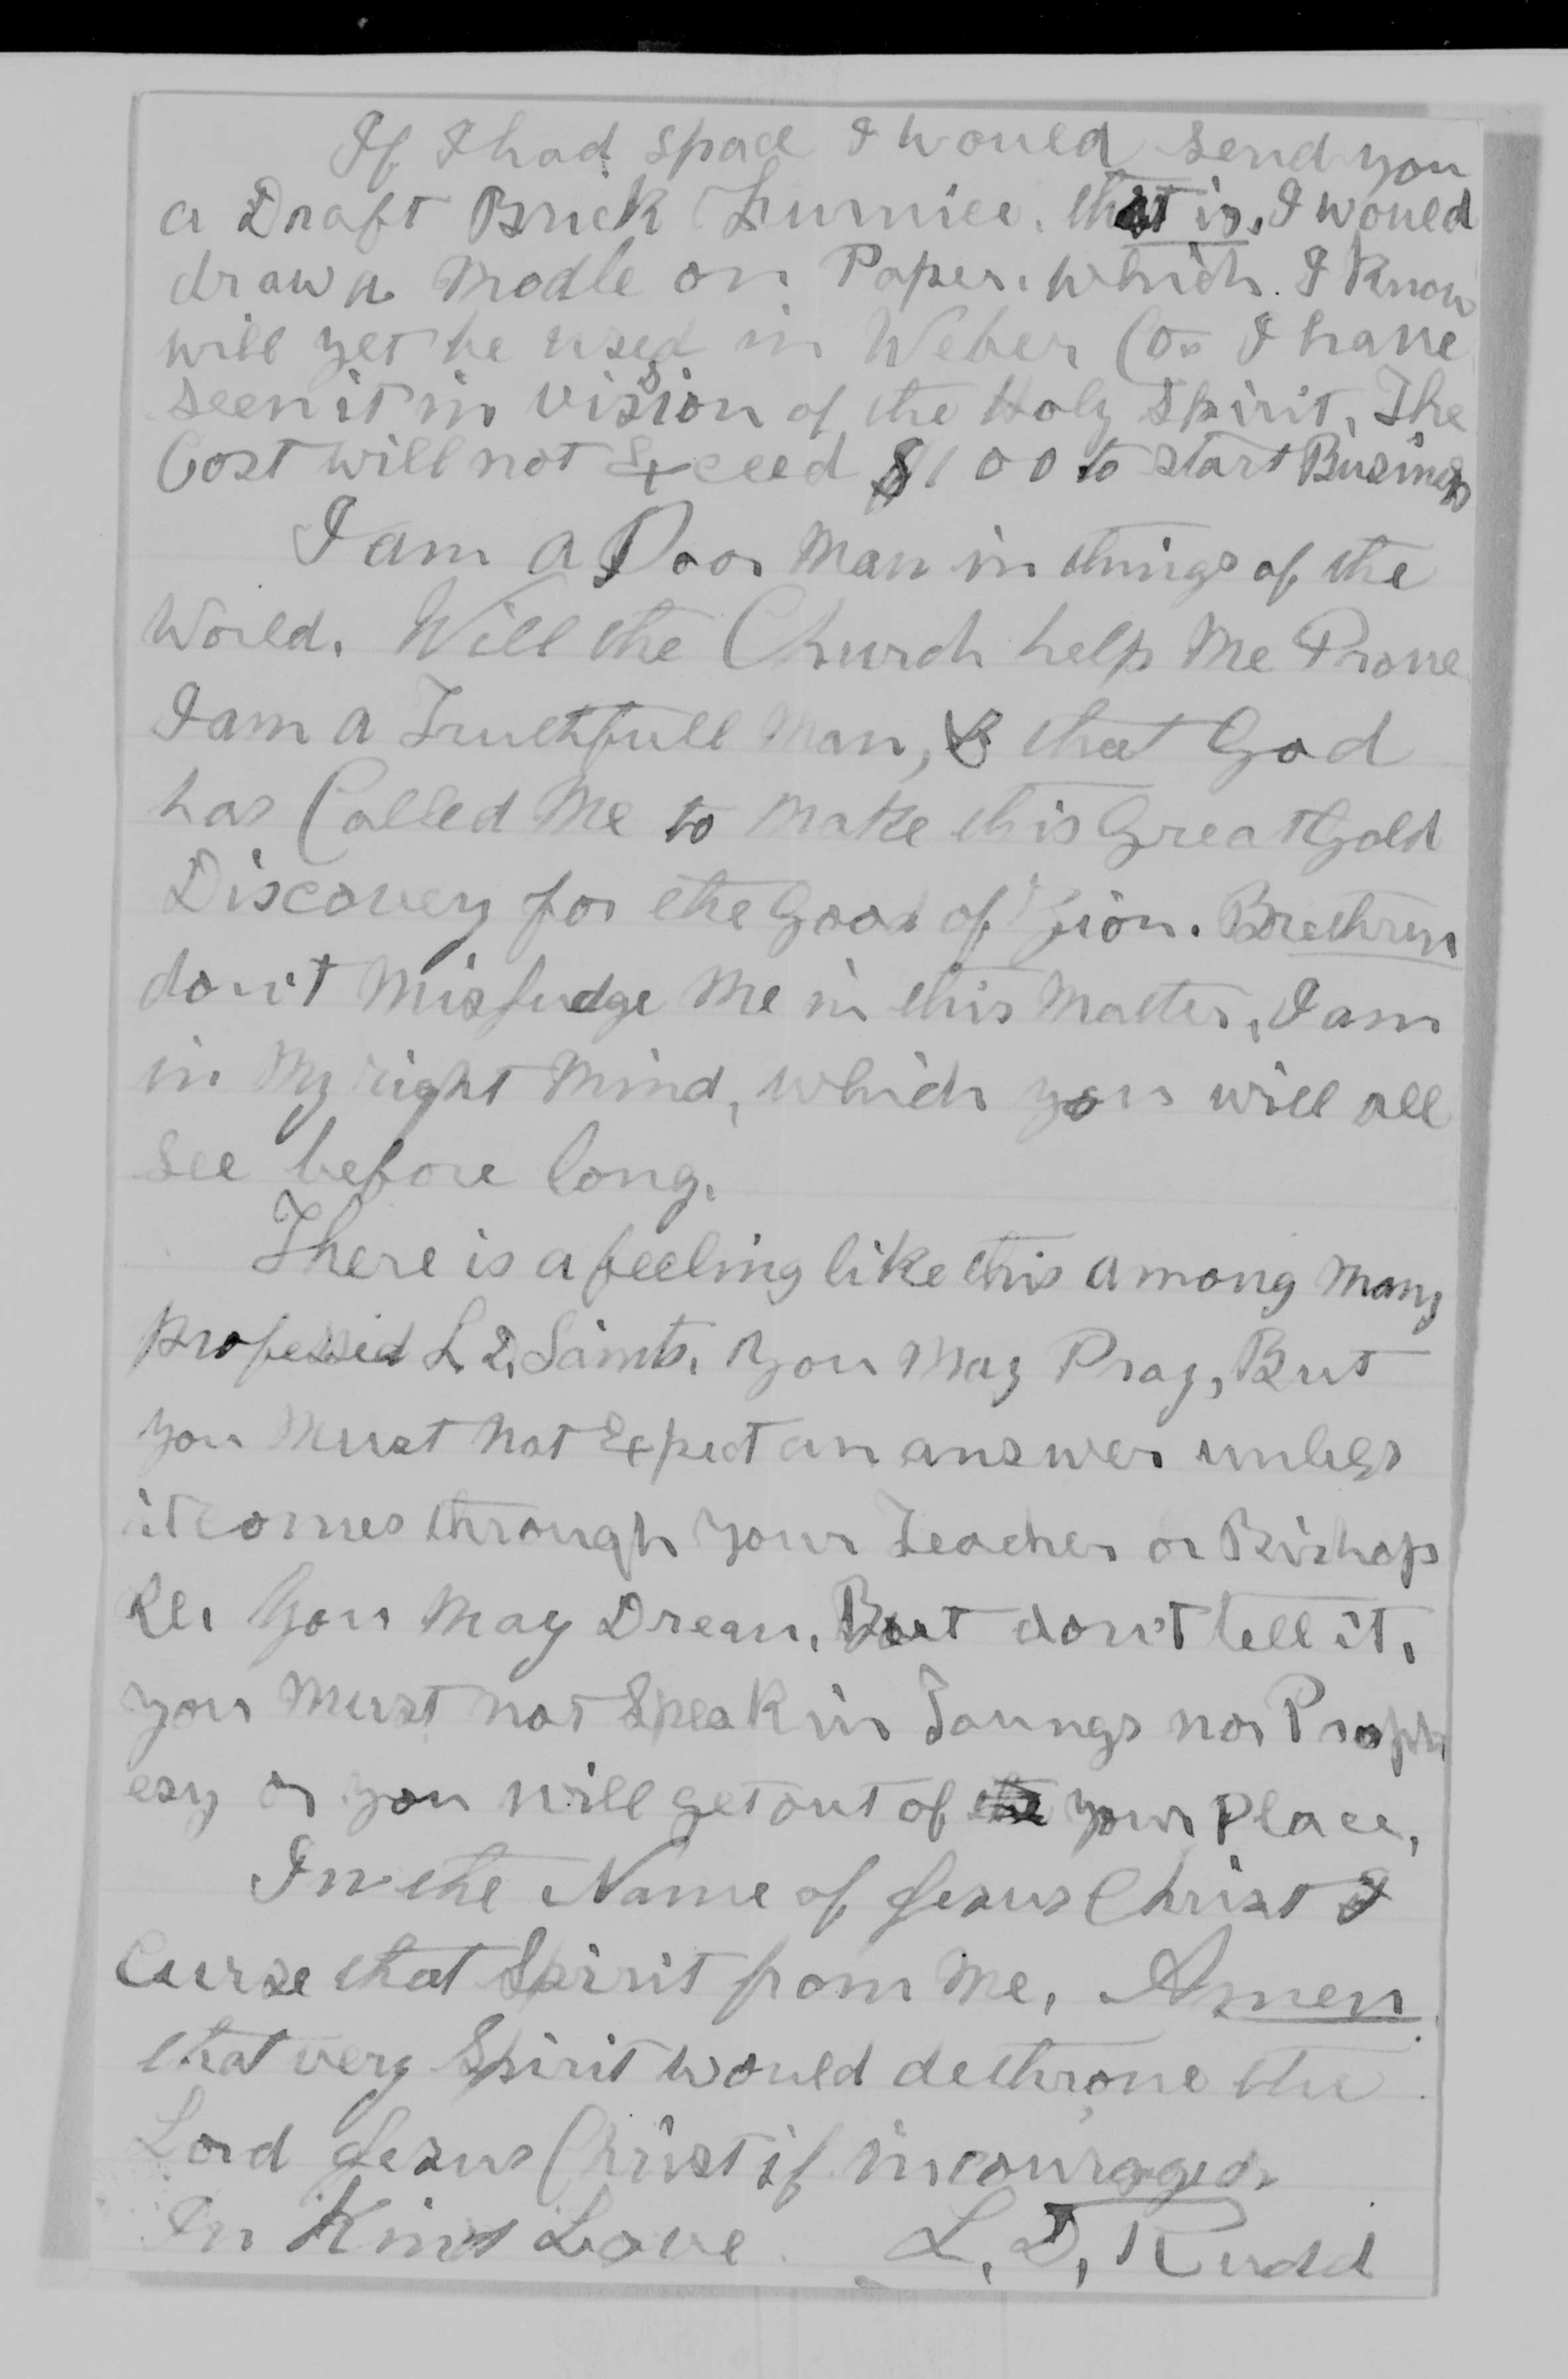 If I had space I would send you
a Draft Brick Furnice. that is, I would
draw a Modle on Paper. which I Know
will yet be used in Weber Co. I have
seen it in vission of the Holy Spirit, The
Cost will not Exceed $100 to start Business
I am a Poor Man in things of the
World. Will the Church help Me Prove
I am a Truthfull Man, & that God
has Called Me to Make this Great Gold
Discovery for the Good of Zion. Brethren
don't Misjudge Me in this Matter, I am
in My right Mind, which you will all
see before long.
There is a feeling like this among Many
professed L. D. Saints. You May Pray, But
you Must Not Expect an answer unless
it comes through your Teacher or Bishop
You May Dream, But don't tell it,
you Must not Speak in Toungs nor Proph
esy or you will get out of the your Place,
In the Name of Jesus Christ I
Curse that Spirit from Me, Amen
that very Spirit would dethrone the
Lord Jesus Christ if incouraged.
In Kind Love L. D. Rudd